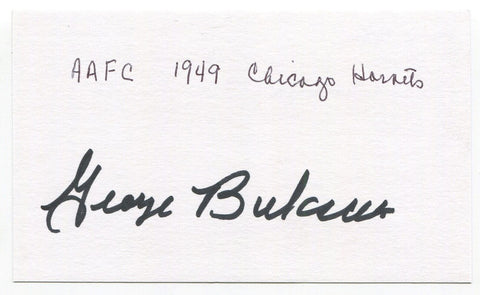 AAFC 1949 Chicago Hornets
George Buksar